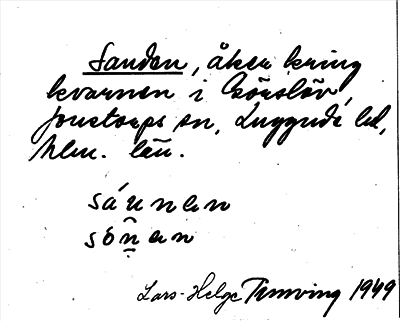 Sanden, åker kring
kvarnen i Görslöv,
Jonstorps sn, Luggude hd,
Mlm. län.
sáunen
són̂en
Lars-Helge Tunving 1949